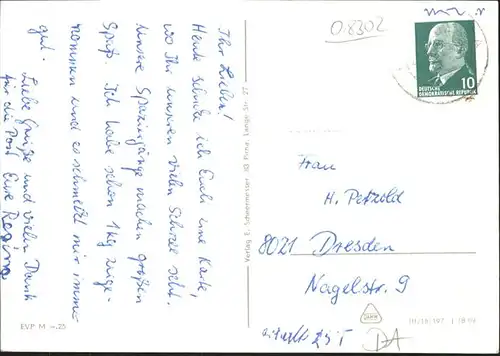 Ihr Lieben!
Heute schicke ich Euch eine Karte,
wo Ihr unseren vielen Schnee seht.
Unsere Spaziergänge machen großen
Spaß. Ich habe schon 1 kg zuge-
nommen und es schmeckt mir immer
gut.
Liebe Grüße und vielen Dank
für die Post Eure Regina
EVP M -.25
Verlag E. Schneermeister, 30 Pirna, Lange Str. 27
O-8302
DEUTSCHE
DEMOKRATISCHE REPUBLIK
10
Frau
H. Petzold
8021 Dresden
Nagelstr. 9
DA